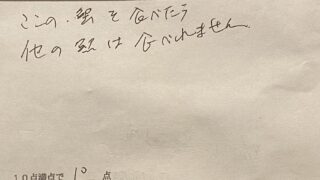 ここの、蟹を食べたら
他の蟹は食べれません
10点満点で 10 点